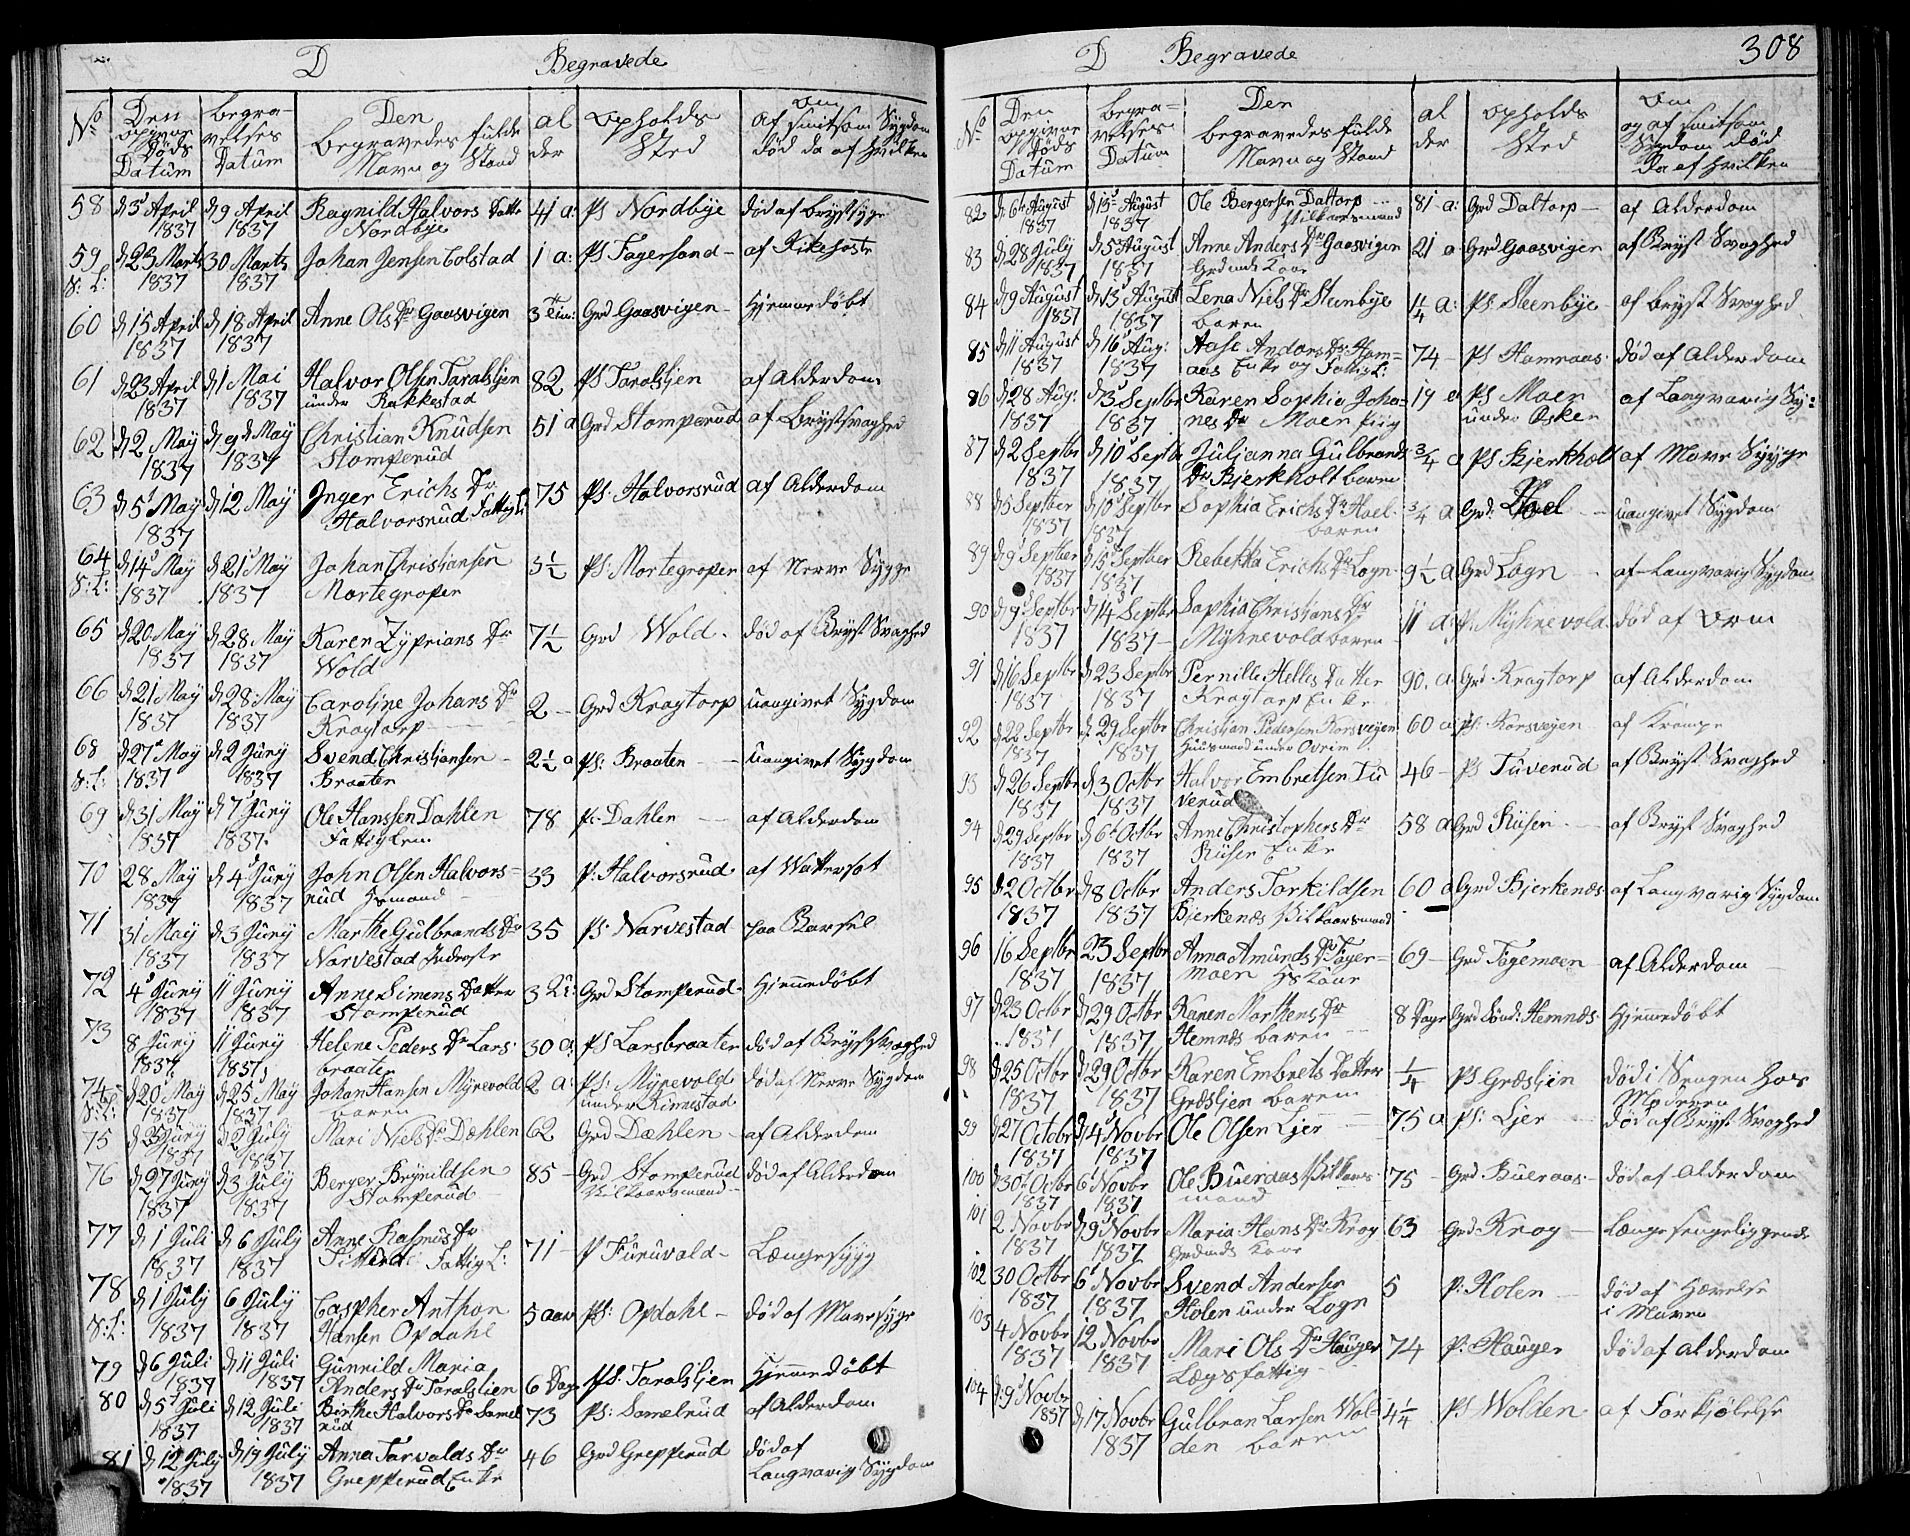 D Begravede
No
Den opgivne Døds Datum
Begravelses Datum
Den begravedes fulde Navn og Stand
al der
opholds Sted
Om af smitsom Sygdom død da af hvilken
58 d 3 April 1837 d 9 April 1837 Ragnild Halvors Datte Nordbye 41 a: Ps Nordbye død af brystsyge
59 S: L: d 23 Marts 1837 30 Marts 1837 Johan Jensen Colstad 1 a: Ps Fagersand – af Kikhoste
60 d 15 April 1837 d 18 April 1837 Anne Ols Dr Gaasvigen 3 Tim: Grd Gaasvigen – Hjemmedøbt
61 d 23 April 1837 d 1 Mai 1837 Halvor Olsen Taraldsjen under Rakkestad 82 Ps Taraldsjen af Alderdom
62 d 2 May 1837 d 9d May 1837 Christian Knudsen Stomperud 51 a Grd Stomperud af Brystsvaghed
63 d 5 May 1837 d 12 May Inger Erichs Dr Halvorsrud Fattig L: 75 Ps: Halvorsrud af Alderdom
64 S: L: d 14 May 1837 d 21 May 1837 Johan Christiansen Mortegropen 3½ Ps: Mortegropen af Nerve Sygge
65 d 20 May 1837 d 28 May 1837 Karen Zyprians Dr Wold 7½ Grd Wold – død af Bryst Svaghed
66 d 21 May 1837 d 28 May 1837 Caroline Johans Dr Kragtorp 2 – Grd Kragtorp uangivet Sygdom
68 S: L: d 27 May 1837 d 2 Juny 1837 Svend Christiansen Braaten 2½ a Ps: Braaten – uangivet Sygdom
69 d 31 May 1837 d 7 Juny 1837. Ole Hanssen Dahlen Fattig Lem 78 Ps: Dahlen – af Alderdom
70 28 May 1837 d 4 Juny 1837 John Olsen Halvorsrud 33 P: Halvorsrud af Wattersot
71 31 May 1837 d 3 Juny 1837 Marthe Gulbrands Dr Narvestad Inderste 35 Ps: Narvestad paa Barsel
72 4 Juny 1837 11 Juny 1837 Anne Simens Datter Stomperud 3 Grd Stomperud – Hjemmedøbt
73 8 Juny 1837 11 Juny 1837 Helene Peders Dr Larsbraaten 30 a: Ps Larsbraaten død af Brystsvaghed
74 S: L: d 20 May 1837 d 25 May 1837 Johan Hansen Myrevold baren 2 a: Ps: Myrevold under Kinnestad død af Nerve Sygdom
75 d 25 Juny 1837 d 2 July 1837 Mari Niels Dr Dæhlen 62 Grd Dæhlen – af Alderdom
76 d 27 Juny 1837 d 3 July 1837 Berger Brynildsen Stomperud – 85 – Grd Stomperud Vilkaarsmand – død af Alderdom
77 d 1 Juli 1837 d 6 July 1837 Anne Rasmus Dr Fattig L: 71 – P Furuvald – Længesyyg
78 S: L: d 1 July 1837 6 July 1837 Caspher Anthon Hansen Opdahl 5 aar Ps: Opdahl – død af Mavesyge
79 d 6 Juli 1837 d 11 Juli 1837 Gunnild Maria Anders Dr Taraldlien 6 Dage Ps: Taraldsjen Hjemmedøbt
80 d 5 Juli 1837 d 12 Juli 1837 Birthe Halvors Dr Samelrud 73 Ps: Samelrud af Alderdom
81 d 12 July 1837 d 19 July 1837 Anna Torvalds Dr Grepperud Enke 46 Grd Grepperud død af Langvarig Sygdom
D Begravede 308
No
Den opgivne Døds Datum
Begravelses Datum
Den begravedes fulde Navn og Stand
al der
opholds Sted
Om og af smitsom Sygdom død da af hvilken
82 d: 6t August 1837 d 13 August 1837 Ole Bergersen Daltorp Vilkaarsmand 81 a: Grd Daltorp – af Alderdom
83 d 28 July 1837 d 5 August 1837 Anne Anders Dr Gaasvigen Grdmds Kone 21 a Grd Gaasvigen af Bryst Svaghed
84 d 9 August 1837 d 13 August 1837 Lena Niels Dr Steenbye baren 1¼ a: Ps: Steenbye af bryst Svaghed
85 d 11 August 1837 d 16 Aug: 1837 Aase Anders Dr Hamraas Enke og Fattig L: 74 – Ps Hamraas død af Alderdom
86 d 28 Aug: 1837 d 3 Septbr 1837 Karen Sophia Johanes Dr Moen piig 19 a Ps Moen under Asken af Langvarig Sy:
87 d 2 Septbr 1837 d 10 Septbr 1837 Julianna Gulbrands Dr Bjerkholt baren ¾ a Ps Bjerkholt af Mave Syyge
88 d 5 Septber 1837 d 10 Septbr 1837 Sophia Erichs Dr Hoel baren ¾ a Grd: Hoel – uangivet Sygdom
89 d 9 Septber 1837 d 15 Septber 1837 Rebekka Erichs Dr Logn 9½ a Grd Logn – af Langvarig Sygdom
90 d 9 Septbr 1837 d 14 Septbr 1837 – Sophia Christians Dr Myhrevold baren 11 a: P: Myhrevold død af Orm
91 d 16 Septbr 1837 d 23 Septbr 1837 Pernille Helles Datter Kragtorp Enke 90. a Grd Kragtorp af Alderdom
92 d 22 Septbr 1837 d 29 Septbr 1837 Christian Pedersen Korsvejen Huusmand under Ovrim 60 a Ps: Korsvejen af Krampe
93 d 26 Septbr 1837 d 3 Octbr 1837 Halvor Embretsen Tuverud 46 – Ps Tuverud af Bryst Svaghed
94 d 29 Septbr 1837 d 6 Octbr 1837 Anne Christophers Dr Riiser Enke 58 a Grd Riiser – af Bryst Svaghed
95 d 2 Octbr 1837 d 8 Octbr 1837 Anders Torkildsen Bjerkenæs Vilkaarsmand 60 a Grd Bjerkenæs af Langvarig Sygdom
96 16 Septbr 1837 23 Septbr 1837 Anna Amunds Dr Fagermoen Hs Kone 69 – Grd Fagemoen – af Alderdom –
97 d 23 Octbr 1837 d 29 Octbr 1837 Karen Marthens Dr Hemnes baren 8 Dage Grd Sønd: Hemnæs Hjemmedøbt
98 d 25 Octbr 1837 d 29 Octbr 1837 Karen Embrets Datter Græsljen baren ¼ Ps Græsljen død i Sengen hos Moderen
99 d 27 Octobr 1837 d 4 Novbr 1837 Ole Olsen Ljer 75 a Ps: Ljer død af Bryst Svaghed
100 d 30t Octbr 1837 6 Novbr 1837 Ole Bueraas Vilkaarsmand 75 – Grd Bueraas – død af Alderdom
101 2 Novbr 1837 d 9 Novbr 1837 Maria Hans Dr Krog Grdmds Kone 63 Grd Krog – Længe sengeliggende
102 30 Octbr 1837 6 Novbr 1837 Svend Andersen Holen under Logn 5 P: Holen – død af Hævelse i Maven
103 4 Novbr 1837 12 Novbr 1837 Mari Ols Dr Hauger Lægsfattig 74 P: Hauger død af Alderdom
104 d: 9 Novbr 1837 d 17 Novbr 1837 Gulbran Larsen Wolden baren 4¼ Ps Wolden af Forkjølelse